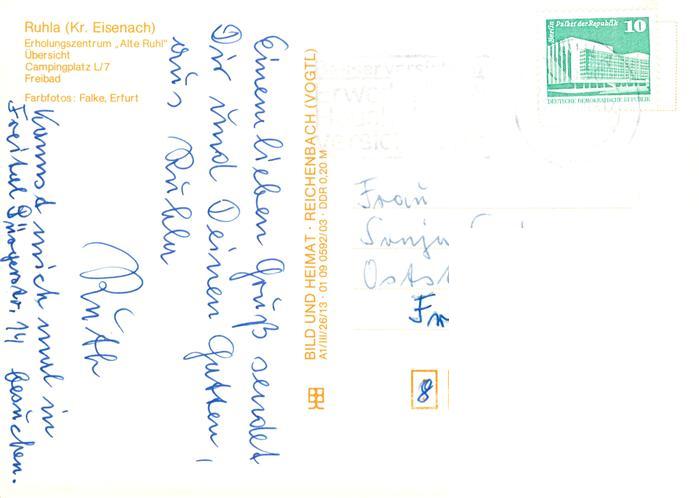 Ruhla (Kr. Eisenach)
Erholungszentrum „Alte Ruhl"
Übersicht
Campingplatz L/7
Freibad
Farbfotos: Falke, Erfurt
Einen lieben Gruß sendet
Dir und Deinen Gatten,
aus Ruhla
Ruth
Kannst mich mal in
Freital Bürgerstr. 14 besuchen.
BILD UND HEIMAT · REICHENBACH (VOGTL)
A1/III/26/13 · 01 09 0592/03 · DDR 0,20 M
Berlin Palast der Republik 10
DEUTSCHE DEMOKRATISCHE REPUBLIK
Frau
Sonja
8